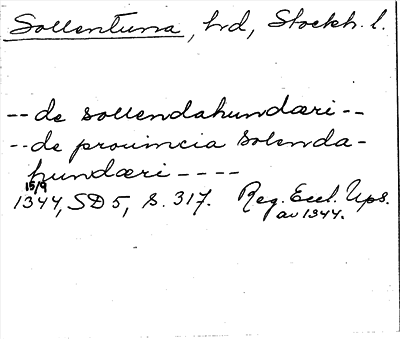 Sollentuna, hrd, Stockh. l.
-- de sollendahundæri --
-- de prouincia Solenda-
hundæri ----
15/9
1344, SD 5, s. 317. Reg. Eccl. Ups.
av 1344.